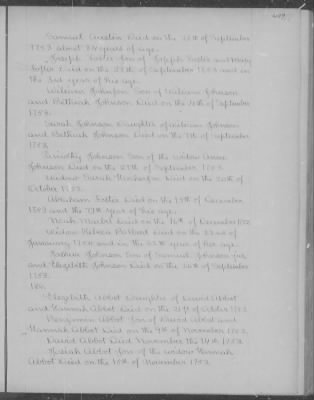 Samuel Austin Died on the 26th of September
1753 about 84 years of age.
Joseph Foster Son of Joseph Foster and Mary
Foster Died on the 27th of September 1753 and in
the 3rd year of his age.
William Johnson Son of William Johnson
and Bethiah Johnson Died on the 4th of September
1753.
Sarah Johnson Daughter of William Johnson
and Bethiah Johnson Died on the 7th of September
1753.
Timothy Johnson Son of the widow Anne
Johnson Died on the 27th of September 1753.
Widow Sarah Died on the 20th of
October 1753.
Abraham Foster Died on the 15th of December
1753 and the 77th year of his age.
Died on the 16th of December 1753.
Widow Ballard Died on the 22nd of
January 1754 and in the year of her age.
Johnson Son of Samuel Johnson jun
and Elizabeth Johnson Died on the 24th of September
1753.
Elizabeth Abbot Daughter of David Abbot
and Hannah Abbot Died on the 21st of October 1753.
Benjamin Abbot Son of David Abbot and
Hannah Abbot Died on the 9th of November 1753.
David Abbot Died November the 14th 1753
Abbot Son of the widow Hannah
Abbot Died on the 15th of November 1753.